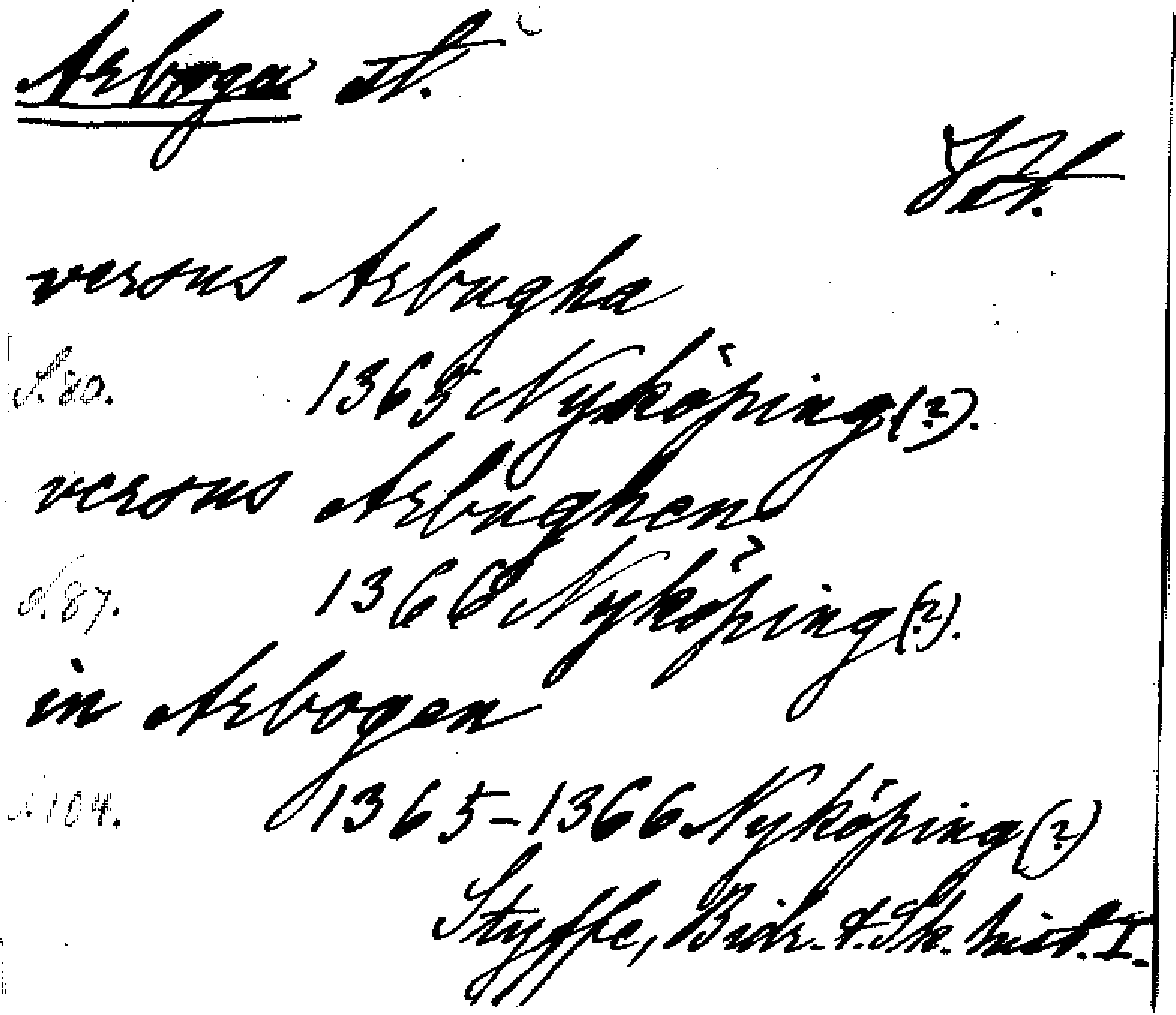 Arboga st.
versus Arbugha
s. 80. 1365 Nyköping (?).
versus Arbughen
s. 87. 1366 Nyköping (?).
in Arbogen
s. 104. 1365-1366 Nyköping (?)
Styffe, Bidr. t. Sk. hist. I.